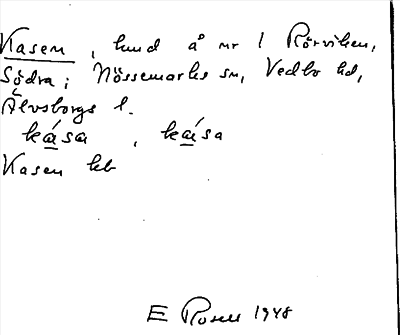 Kasen, hmd å nr 1 Rörviken,
Södra; Nössemarks sn, Vedbo hd,
Älvsborgs l.
ká̱sa, ká̱sa
Kasen kb
E Rosell 1948